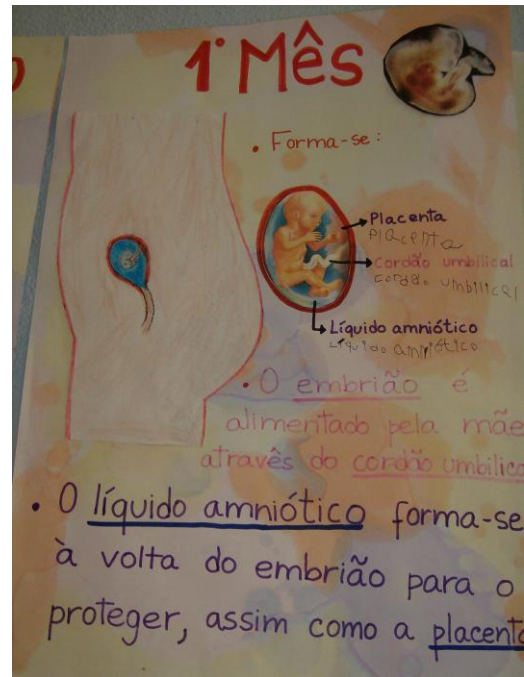 1º Mês
• Forma-se:
Placenta
Placenta
Cordão umbilical
cordão umbilical
Líquido amniótico
Líquido amniótico
• O embrião é
alimentado pela mãe
através do cordão umbilica
• O líquido amniótico forma-se
à volta do embrião para o
proteger, assim como a placenta